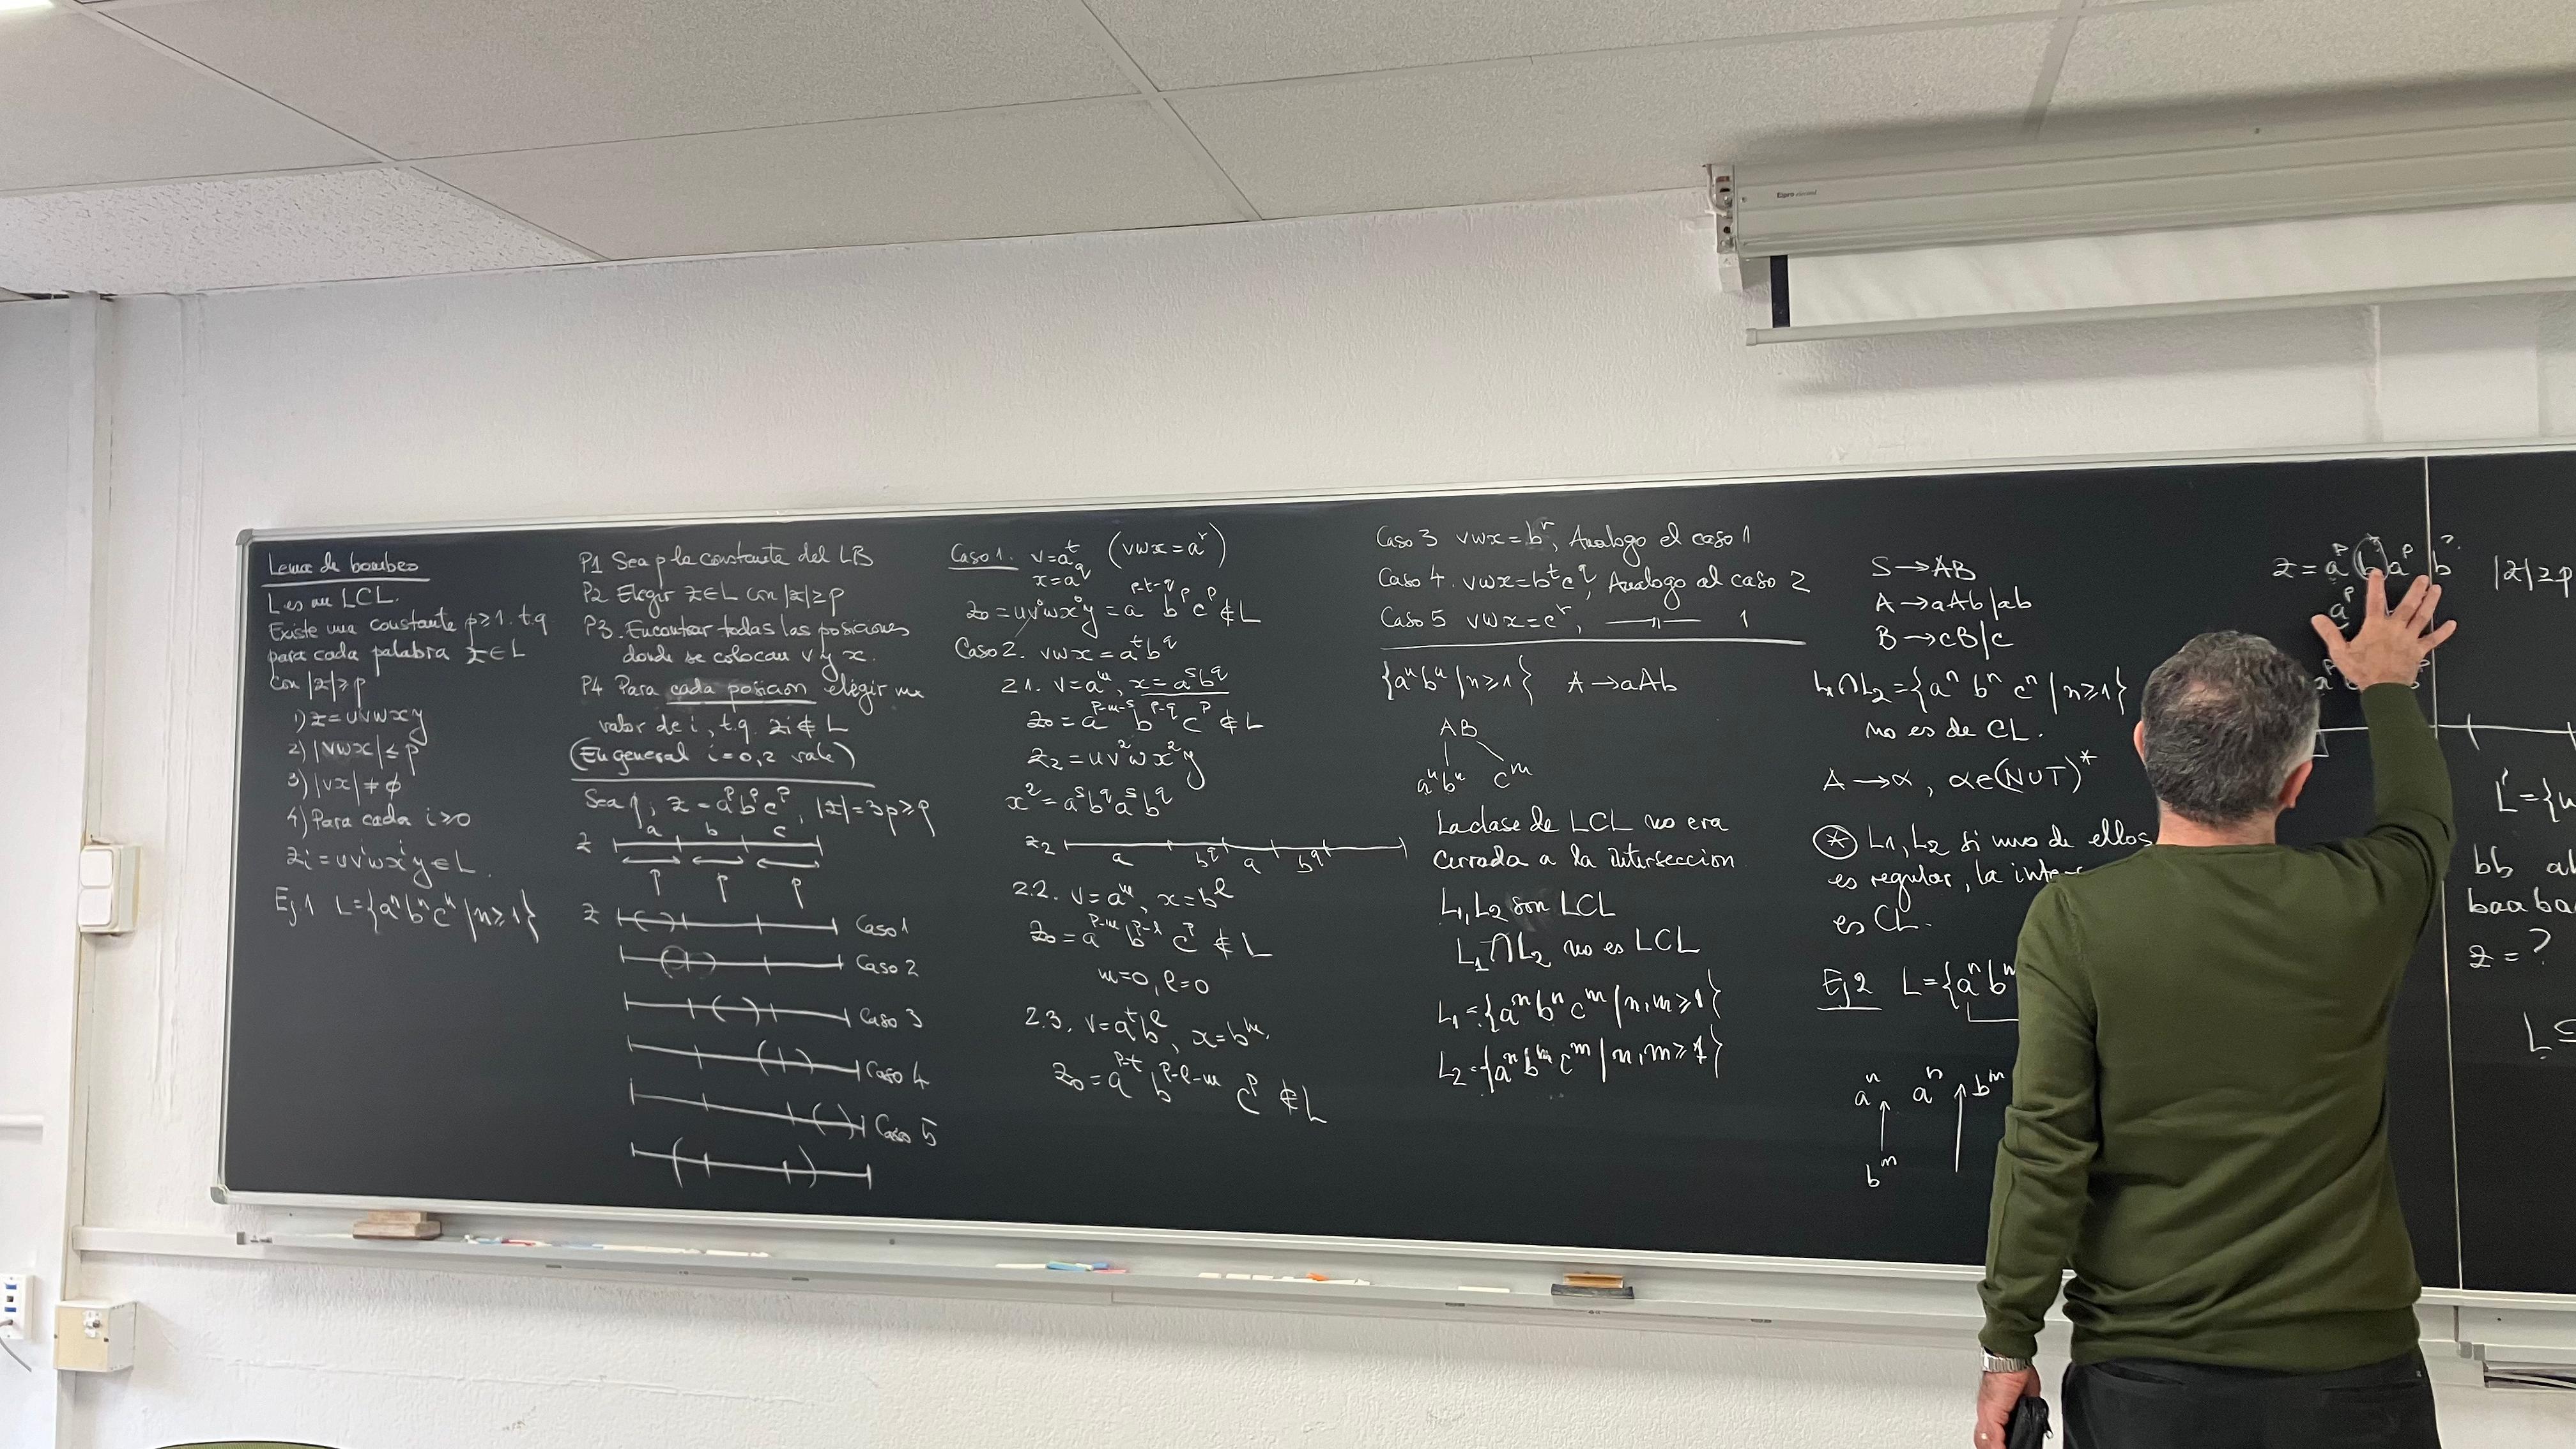 Lema de bombeo
L es un LCL.
Existe una constante p≥1. t.q
para cada palabra z∈L
con |z|≥p
1) z=uvwxy
2) |vwx|≤p
3) |vx|≠ϕ
4) Para cada i≥0
zi=uvⁱwxⁱy∈L.
Ej.1 L={aⁿbⁿcⁿ|n≥1}
P1 Sea p la constante del LB
P2 Elegir z∈L con |z|≥p
P3. Encontrar todas las posiciones
donde se colocan v y x.
P4 Para cada posicion elegir un
valor de i, t.q. zi∉L
(En general i=0,2 vale)
z=aᵖbᵖcᵖ, |z|=3p≥p
z a b c
p p p
z Caso 1
Caso 2
Caso 3
Caso 4
Caso 5
Caso 1. v=aᵗ (vwx=aʳ)
x=a^q
z₀=uv⁰wx⁰y=a^{p-t-q}bᵖcᵖ∉L
Caso 2. vwx=aᵗb^q
2.1. v=aᵐ, x=aˢb^q
z₀=a^{p-m-s}b^{p-q}cᵖ∉L
z₂=uv²wx²y
x²=aˢb^qaˢb^q
z₂ a b^q a b^q
2.2. v=aᵐ, x=bˡ
z₀=a^{p-m}b^{p-l}cᵖ∉L
m=0, l=0
2.3. v=aᵗbˡ, x=bᵐ.
z₀=a^{p-t}b^{p-l-m}cᵖ∉L
Caso 3 vwx=bʳ, Analogo el caso 1
Caso 4. vwx=bᵗc^q, Analogo al caso 2
Caso 5 vwx=cʳ, —"— 1
{aⁿbⁿ|n≥1} A→aAb
AB
aⁿbⁿ cᵐ
La clase de LCL no era
cerrada a la interseccion
L₁,L₂ son LCL
L₁∩L₂ no es LCL
L₁={aⁿbⁿcᵐ|n,m≥1}
L₂={aⁿbᵐcᵐ|n,m≥1}
S→AB
A→aAb|ab
B→cB|c
L₁∩L₂={aⁿbⁿcⁿ|n≥1}
no es de CL.
A→α, α∈(N∪T)*
* L1,L2 si uno de ellos
es regular, la
es CL.
Ej2 L={aⁿbᵐ
aⁿ aⁿ bᵐ
bᵐ
z=aᵖ b aᵖ b |z|≥p
aᵖ
L={
bb
z=?
L⊆